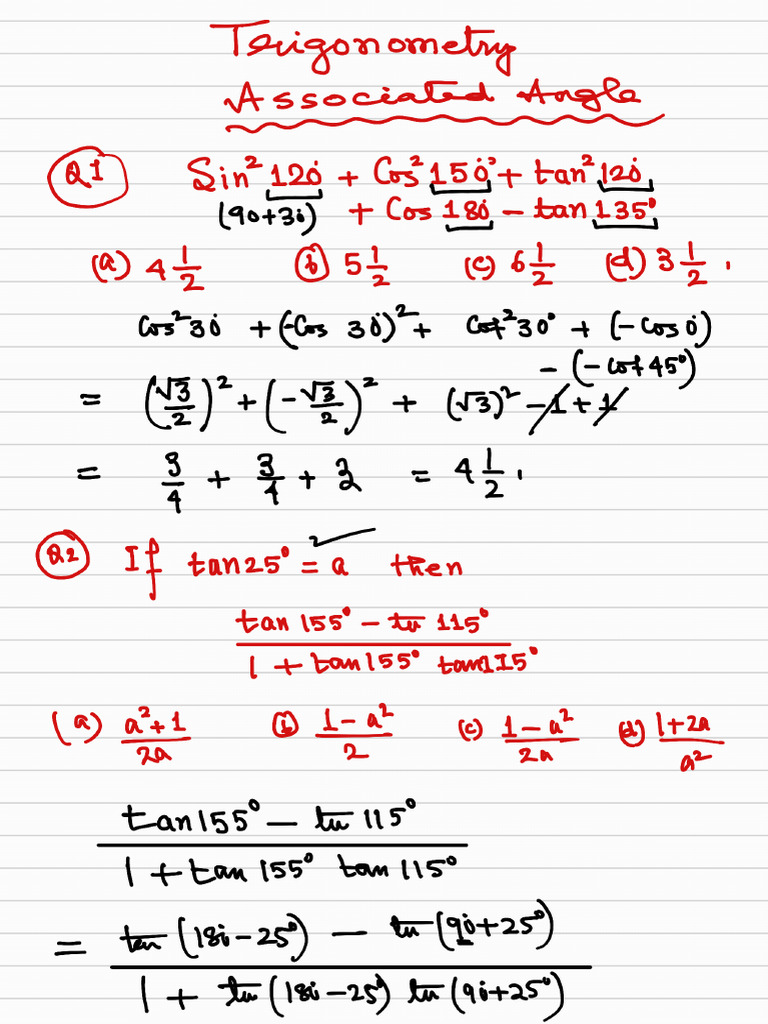 Trigonometry
Associated Angle
Q1 Sin² 120° + Cos² 150° + tan² 120°
(90+30) + Cos 180° − tan 135°
(a) 4 1/2 (b) 5 1/2 (c) 6 1/2 (d) 3 1/2 .
Cos² 30° + (−Cos 30°)² + Cot² 30° + (−Cos 0°)
− (− cot 45°)
= (√3/2)² + (−√3/2)² + (√3)² − 1 + 1
= 3/4 + 3/4 + 3 = 4 1/2 .
Q2 If tan 25° = a then
(tan 155° − tan 115°)/(1 + tan 155° tan 115°)
(a) (a²+1)/2a (b) (1−a²)/2 (c) (1−a²)/2a (d) (1+2a)/a²
(tan 155° − tan 115°)/(1 + tan 155° tan 115°)
= (tan (180−25°) − tan (90+25°))/(1 + tan (180−25°) tan (90+25°))